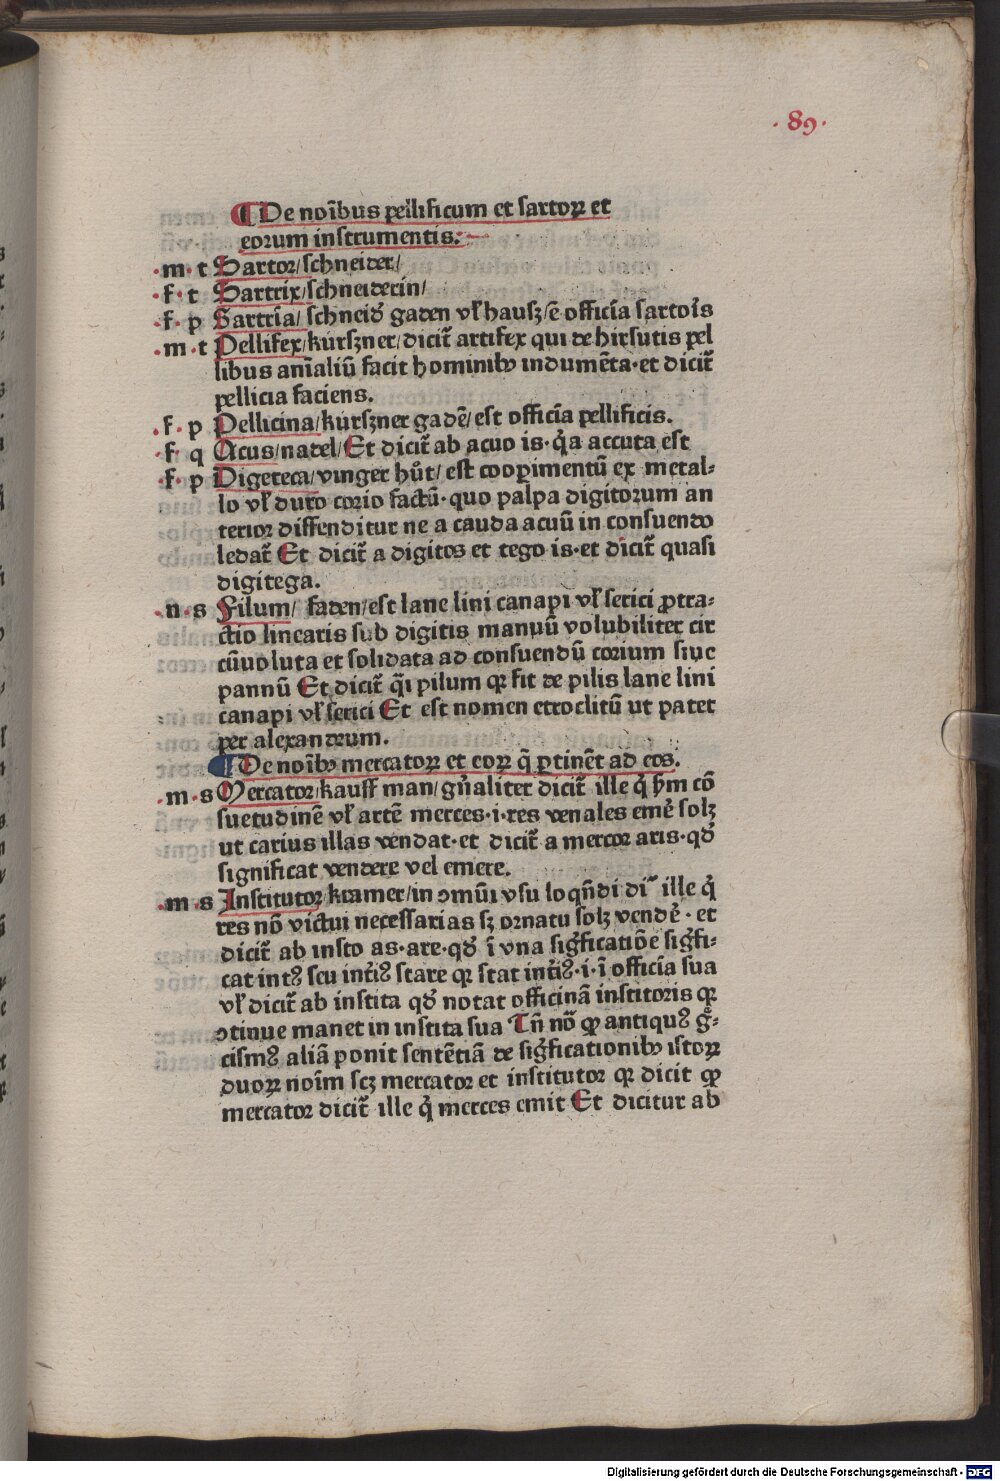 ·89·
¶ De noı̄bus pellificum et sartoꝝ et
eorum instrumentis:
·m·t Sartor/schneider/
·f·t Sartrix/schneiderin/
·f·p Sartria/ schneid̛ gaden vł hausz/ē officia sartoı̄s
·m·t Pellifex/kúrszner/dicit̄ artifex qui de hirsutis pel
libus anı̄aliū facit hominibꝫ indumēta·et dicit̄
pellicia faciens.
·f·p Pellicina/kúrszner gadē/est officia pellificis.
·f·q Acus/nadel/Et dicit̄ ab acuo is·q̇a accuta est
·f·p Digeteca/vinger hůt/ est cooperimentū ex metal⸗
lo vł duro corio factū·quo palpa digitorum an
terior diffenditur ne a cauda acuū in consuendo
ledat̄ Et dicit̄ a digitos et tego is·et dicit̄ quasi
digitega.
·n·s Filum/ faden/est lane lini canapi vł serici ꝓtra⸗
ctio linearis sub digitis manuū volubiliter cir
cūuoluta et solidata ad consuendū corium siue
pannū Et dicit̄ q̄i pilum qꝛ fit de pilis lane lini
canapi vł serici Et est nomen etroclitū ut patet
per alexandrum.
¶ De noı̄bꝫ mercatoꝝ et eoꝝ q̄ ꝑtinēt ad eos.
·m·s Mercator/kauff man/ gn̄aliter dicit̄ ille q̇ hm̄ cō
suetudinē vł artē merces·i·res venales eme̛ solꝫ
ut carius illas vendat·et dicit̄ a mercor aris·qd̛
significat vendere vel emere.
·m·s Institutor/kramer/in ꝯmūi vsu loqn̄di dr̄ ille q̇
res nō victui necessarias sꝫ ornatu solꝫ vende̛·et
dicit̄ ab insto as·are·qd̛ ī vna sig̛ficatiōe sig̛fi⸗
cat intꝰ seu int̛iꝰ stare qꝛ stat int̛iꝰ·i·ī officia sua
vł dicit̄ ab instita qd̛ notat officinā institoris qꝛ
ꝯtinue manet in instita sua Tn̄ nō ꝙ antiquꝰ g̛⸗
cismꝰ aliā ponit sentētiā de sig̛ficationibꝫ istoꝝ
duoꝝ noīm scꝫ mercator et institutor qꝛ dicit ꝙ
mercator dicit̄ ille q̇ merces emit Et dicitur ab
Digitalisierung gefördert durch die Deutsche Forschungsgemeinschaft - DFG